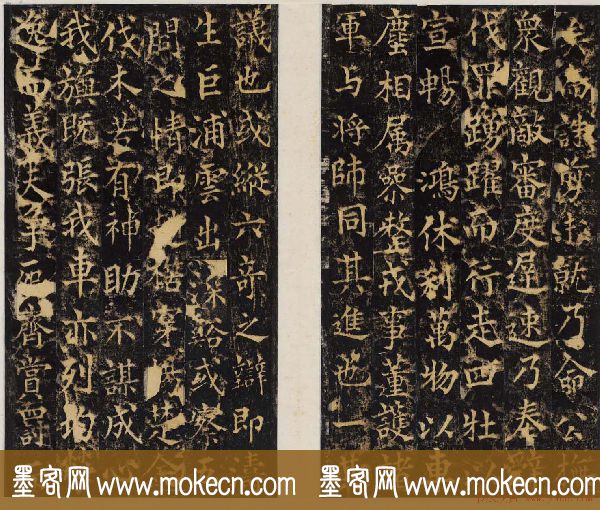 矣而誅剪未就乃命公撫
眾觀敵審度遲速乃奉
伐罪踴躍而行走四牡以
宣暢鴻休利萬物以
塵相属整戎事董護諸
軍与將帥同其進也一
議也或縱六奇之辯即
生巨浦雲出深谿或察五
間之情即楚
伐木若有神助不謀成
我旗既張我車亦列
逸而義夫爭齊賞爵
墨客网 www.mokecn.com 墨客网 www.mokecn.com